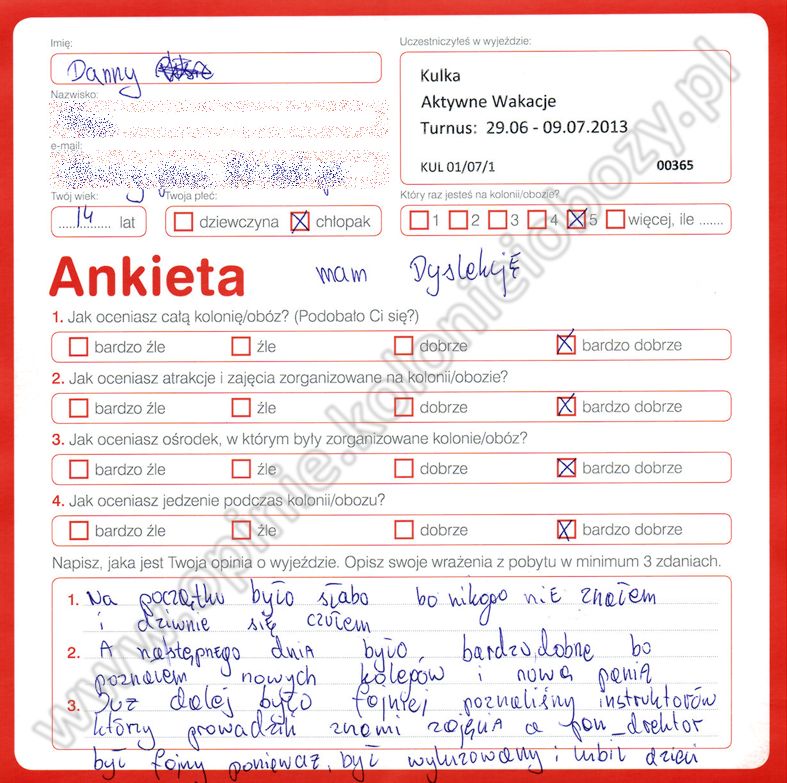 Imię:
Danny
Nazwisko:
e-mail:
Twój wiek:
14 lat
Twoja płeć:
dziewczyna
chłopak
Uczestniczyłeś w wyjeździe:
Kulka
Aktywne Wakacje
Turnus: 29.06 - 09.07.2013
KUL 01/07/1 00365
Który raz jesteś na kolonii/obozie?
1 2 3 4 5 więcej, ile .......
Ankieta
mam Dyslekcję
1. Jak oceniasz całą kolonię/obóz? (Podobało Ci się?)
bardzo źle źle dobrze bardzo dobrze
2. Jak oceniasz atrakcje i zajęcia zorganizowane na kolonii/obozie?
bardzo źle źle dobrze bardzo dobrze
3. Jak oceniasz ośrodek, w którym były zorganizowane kolonie/obóz?
bardzo źle źle dobrze bardzo dobrze
4. Jak oceniasz jedzenie podczas kolonii/obozu?
bardzo źle źle dobrze bardzo dobrze
Napisz, jaka jest Twoja opinia o wyjeździe. Opisz swoje wrażenia z pobytu w minimum 3 zdaniach.
1. Na początku było słabo bo nikogo nie znałem
i dziwnie się czułem
2. A następnego dnia było bardzo dobrze bo
poznałem nowych kolepów i nową panią
3. Juz dalej było fajniej poznaliśmy instruktorów
którzy prowadzili znami zajęcia a pan_drektor
był fajny poniewaz, był wyluzowany i lubił dzieci
www.opinie.kolonieiobozy.pl